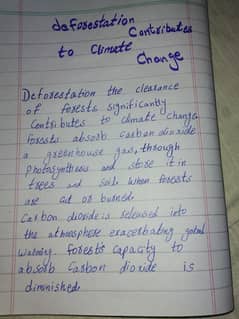 deforestation
Contributes
to Climate
Change
Deforestation the clearance
of forests significantly
Contributes to climate change.
Forests absorb carbon dioxide
a greenhouse gas, through
Photosynthesis and store it in
trees and soils when forests
are cut or burned.
Carbon dioxide is released into
the atmosphere exacerbating
warming. forests capacity to
absorb Carbon dioxide is
diminished.